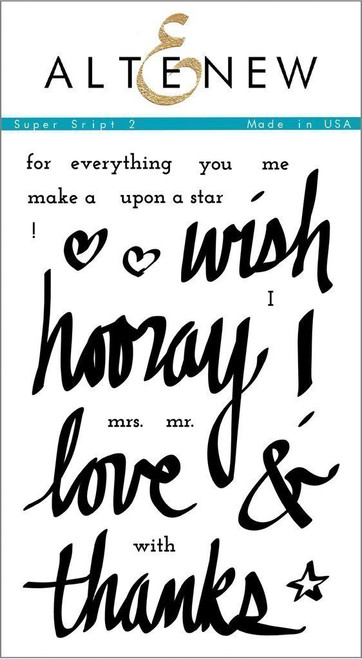 ALTENEW
Super Sript 2 Made in USA
for everything you me
make a upon a star
! wish
I
hooray !
mrs. mr.
love &
with
thanks